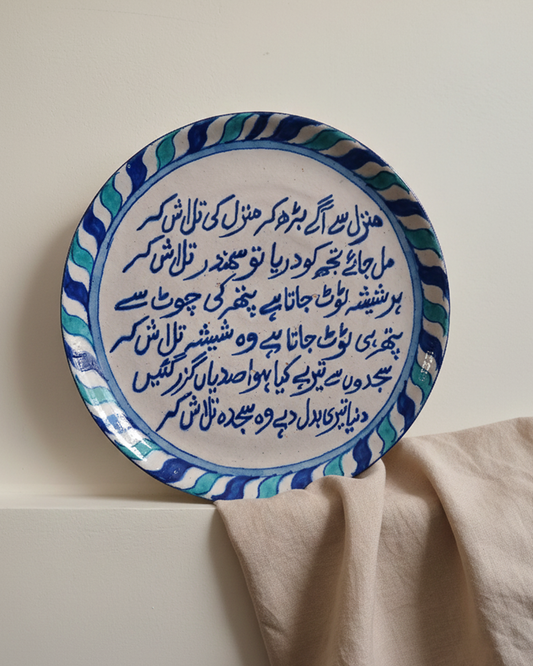 منزل سے آگے بڑھ کر منزل کی تلاش کر
مل جائے تجھ کو دریا تو سمندر تلاش کر
ہر شیشہ ٹوٹ جاتا ہے پتھر کی چوٹ سے
پتھر ہی ٹوٹ جاتا ہے وہ شیشہ تلاش کر
سجدوں سے تیرے کیا ہوا صدیاں گزر گئیں
دنیا تیری بدل دے وہ سجدہ تلاش کر